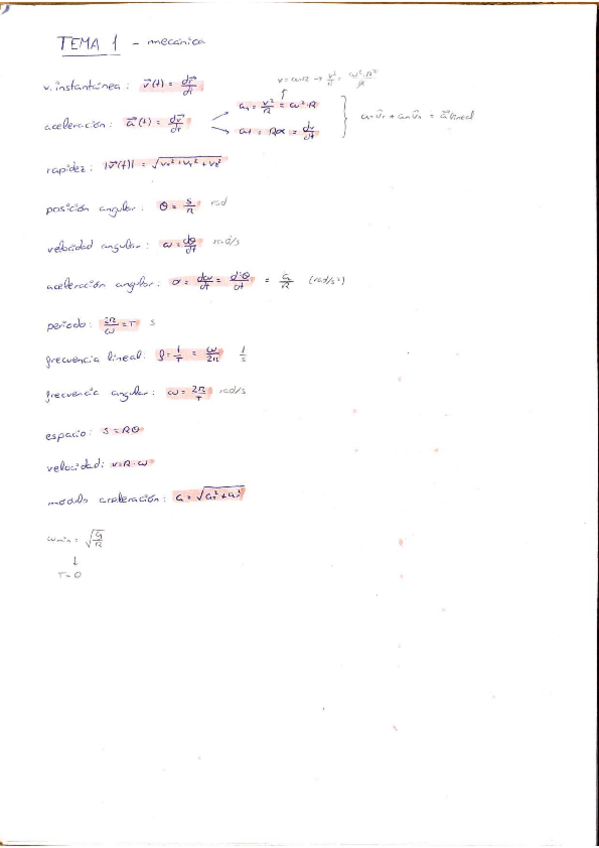 TEMA 1 - mecánica
v = ωR → v²/R = ω²·R²/R
v. instantánea: v⃗(t) = dr⃗/dt
an = v²/R = ω²·R
aceleración: a⃗(t) = dv⃗/dt
at = Rα = dv/dt
= a⃗ lineal
rapidez: |v⃗(t)| = √vx²+vy²+vz²
posición angular: θ = s/R rad
velocidad angular: ω = dθ/dt rad/s
aceleración angular: α = dω/dt = d²θ/dt = a/R (rad/s²)
periodo: 2π/ω = T s
frecuencia lineal: f = 1/T = ω/2π 1/s
frecuencia angular: ω = 2π/T rad/s
espacio: s = Rθ
velocidad: v = R·ω
modulo aceleración: a = √an²+at²
ωmin = √G/R
↓
T = 0